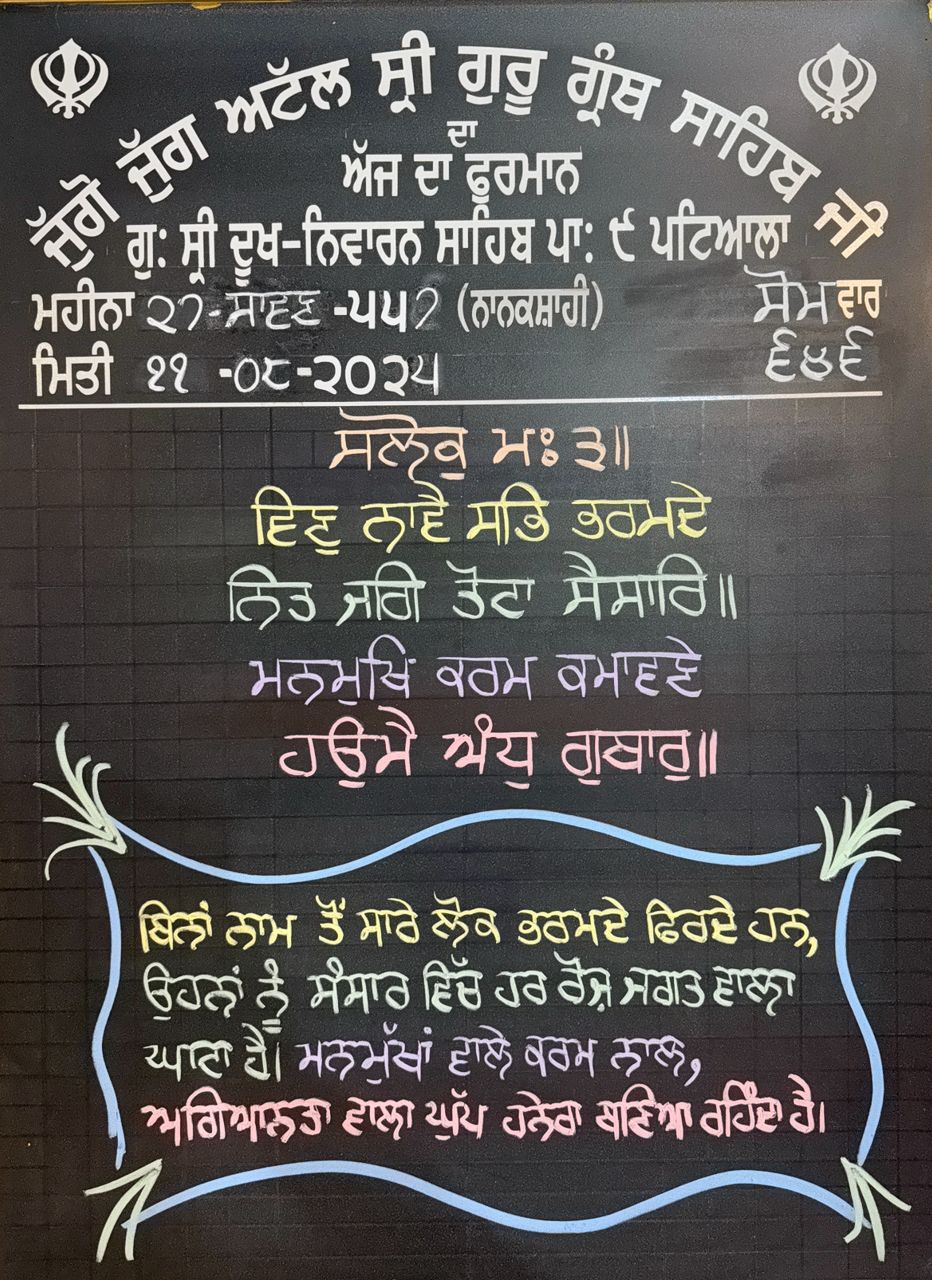 ਜੁੱਗੋ ਜੁੱਗ ਅਟੱਲ ਸ੍ਰੀ ਗੁਰੂ ਗ੍ਰੰਥ ਸਾਹਿਬ ਜੀ
ਦਾ
ਅੱਜ ਦਾ ਫੂਰਮਾਨ
ਗੁ: ਸ੍ਰੀ ਦੂਖ-ਨਿਵਾਰਨ ਸਾਹਿਬ ਪਾ: ੯ ਪਟਿਆਲਾ
ਮਹੀਨਾ ੨੭-ਸਾਵਣ -੫੫੭ (ਨਾਨਕਸ਼ਾਹੀ) ਸੋਮਵਾਰ
ਮਿਤੀ ੧੧ -੦੮-੨੦੨੫ ੬੪੬
ਸਲੋਕੁ ਮਃ ੩॥
ਵਿਣੁ ਨਾਵੈ ਸਭਿ ਭਰਮਦੇ
ਨਿਤ ਜਗਿ ਤੋਟਾ ਸੈਸਾਰਿ॥
ਮਨਮੁਖਿ ਕਰਮ ਕਮਾਵਣੇ
ਹਉਮੈ ਅੰਧੁ ਗੁਬਾਰੁ॥
ਬਿਨਾਂ ਨਾਮ ਤੋਂ ਸਾਰੇ ਲੋਕ ਭਰਮਦੇ ਫਿਰਦੇ ਹਨ,
ਉਹਨਾਂ ਨੂੰ ਸੰਸਾਰ ਵਿੱਚ ਹਰ ਰੋਜ਼ ਜਗਤ ਵਾਲਾ
ਘਾਟਾ ਹੈ। ਮਨਮੁੱਖਾਂ ਵਾਲੇ ਕਰਮ ਨਾਲ,
ਅਗਿਆਨਤਾ ਵਾਲਾ ਘੁੱਪ ਹਨੇਰਾ ਬਣਿਆ ਰਹਿੰਦਾ ਹੈ।